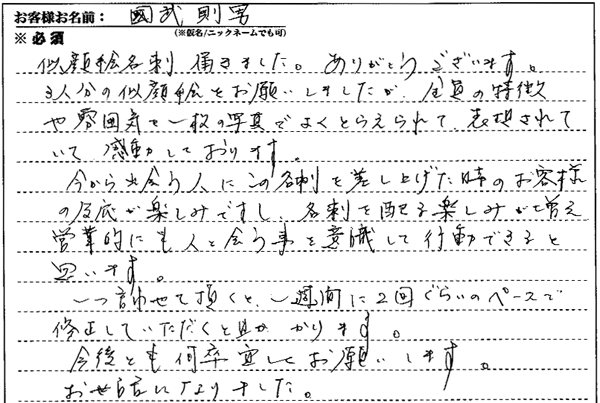 お客様お名前： 國武 則男
※必須 (※仮名/ニックネームでも可)
似顔絵名刺 届きました。ありがとうございます。
3人分の似顔絵をお願いしましたが、全員の特徴
や雰囲気を一枚の写真でよくとらえられて、表現されて
いて感動しております。
今から出会う人にこの名刺を差し上げた時のお客様
の反応が楽しみですし、名刺を配る楽しみが増え
営業的にも人と会う事を意識して行動できると
思います。
一つ言わせて頂くと、一週間に2回ぐらいのペースで
修正していただくと助かります。
今後とも何卒宜しくお願いします。
お世話になりました。